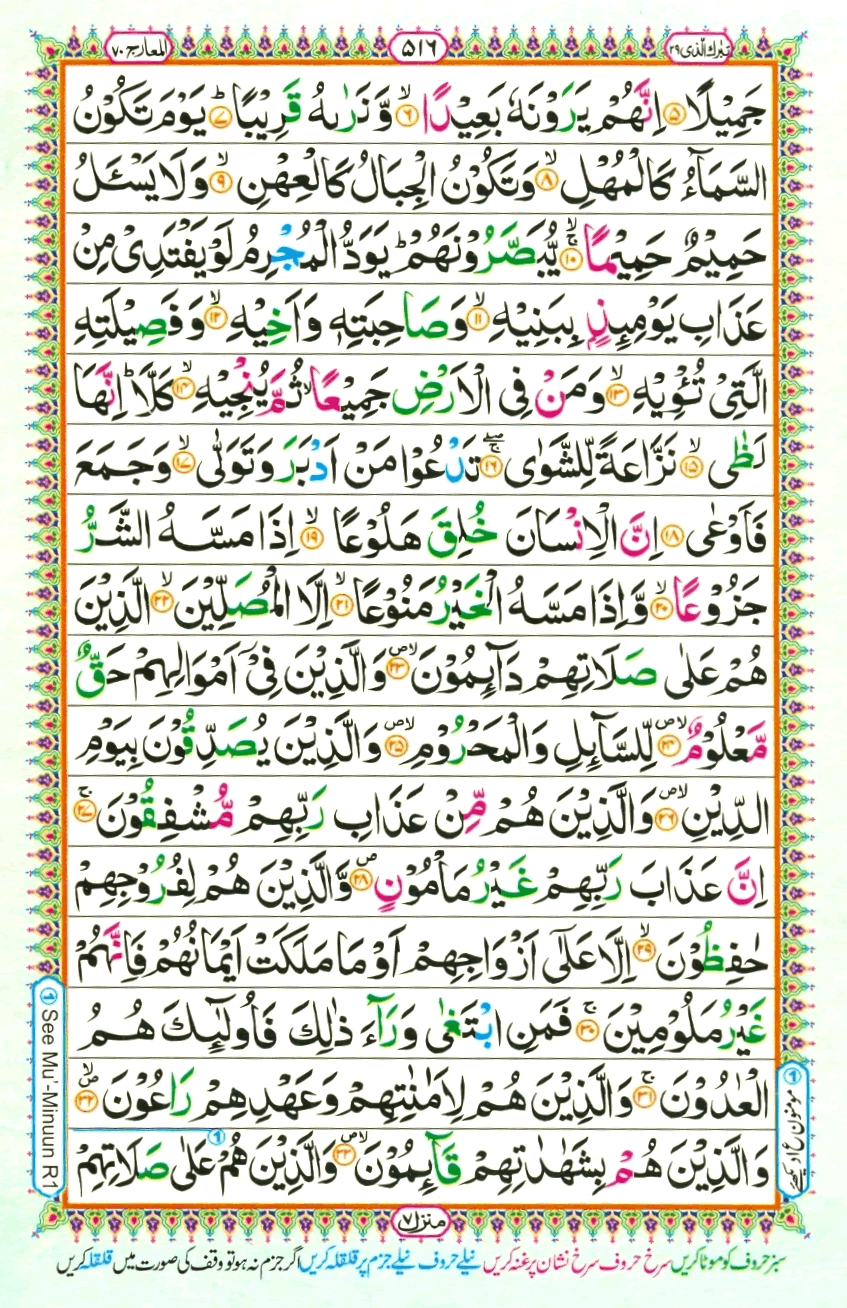 تبٰرك الّذى ٢٩
٥١٦
المعارج ٧٠
جَمِيْلًا ۝٥ اِنَّهُمْ يَرَوْنَهٗ بَعِيْدًا ۝٦ۙ وَّ نَرٰىهُ قَرِيْبًا ۝٧ؕ يَوْمَ تَكُوْنُ
السَّمَآءُ كَالْمُهْلِ ۝٨ۙ وَتَكُوْنُ الْجِبَالُ كَالْعِهْنِ ۝٩ۙ وَلَا يَسْـَٔلُ
حَمِيْمٌ حَمِيْمًا ۝١٠ۚۖ يُّبَصَّرُوْنَهُمْ ؕ يَوَدُّ الْمُجْرِمُ لَوْ يَفْتَدِىْ مِنْ
عَذَابِ يَوْمِىِٕذٍۭ بِبَنِيْهِ ۝١١ۙ وَصَاحِبَتِهٖ وَاَخِيْهِ ۝١٢ۙ وَفَصِيْلَتِهِ
الَّتِىْ تُـْٔوِيْهِ ۝١٣ۙ وَمَنْ فِى الْاَرْضِ جَمِيْعًا ۙ ثُمَّ يُنْجِيْهِ ۝١٤ۙ كَلَّا ؕ اِنَّهَا
لَظٰى ۝١٥ۙ نَزَّاعَةً لِّلشَّوٰى ۝١٦ۚۖ تَدْعُوْا مَنْ اَدْبَرَ وَتَوَلّٰى ۝١٧ۙ وَجَمَعَ
فَاَوْعٰى ۝١٨ اِنَّ الْاِنْسَانَ خُلِقَ هَلُوْعًا ۝١٩ۙ اِذَا مَسَّهُ الشَّرُّ
جَزُوْعًا ۝٢٠ۙ وَّاِذَا مَسَّهُ الْخَيْرُ مَنُوْعًا ۝٢١ۙ اِلَّا الْمُصَلِّيْنَ ۝٢٢ۙ الَّذِيْنَ
هُمْ عَلٰى صَلَاتِهِمْ دَآىِٕمُوْنَ ۝٢٣۪ۙ وَالَّذِيْنَ فِىْۤ اَمْوَالِهِمْ حَقٌّ
مَّعْلُوْمٌ ۝٢٤۪ۙ لِّلسَّآىِٕلِ وَالْمَحْرُوْمِ ۝٢٥۪ۙ وَالَّذِيْنَ يُصَدِّقُوْنَ بِيَوْمِ
الدِّيْنِ ۝٢٦۪ۙ وَالَّذِيْنَ هُمْ مِّنْ عَذَابِ رَبِّهِمْ مُّشْفِقُوْنَ ۝٢٧ۚ
اِنَّ عَذَابَ رَبِّهِمْ غَيْرُ مَاْمُوْنٍ ۝٢٨۪ وَّالَّذِيْنَ هُمْ لِفُرُوْجِهِمْ
حٰفِظُوْنَ ۝٢٩ۙ اِلَّا عَلٰٓى اَزْوَاجِهِمْ اَوْ مَا مَلَكَتْ اَيْمَانُهُمْ فَاِنَّهُمْ
غَيْرُ مَلُوْمِيْنَ ۝٣٠ۚ فَمَنِ ابْتَغٰى وَرَآءَ ذٰلِكَ فَاُولٰٓىِٕكَ هُمُ
الْعٰدُوْنَ ۝٣١ۚ وَالَّذِيْنَ هُمْ لِاَمٰنٰتِهِمْ وَعَهْدِهِمْ رَاعُوْنَ ۝٣٢۪ۙ
وَالَّذِيْنَ هُمْ بِشَهٰدٰتِهِمْ قَآىِٕمُوْنَ ۝٣٣۪ۙ وَالَّذِيْنَ هُمْ عَلٰى صَلَاتِهِمْ
① See Mu'-Minuun R1
① مومنون ع ۱ دیکھئے
منزل ٧
سبز حروف کو موٹا کریں سرخ حروف سرخ نشان پر غنہ کریں نیلے حروف نیلے جزم پر قلقلہ کریں اگر جزم نہ ہو تو وقف کی صورت میں قلقلہ کریں